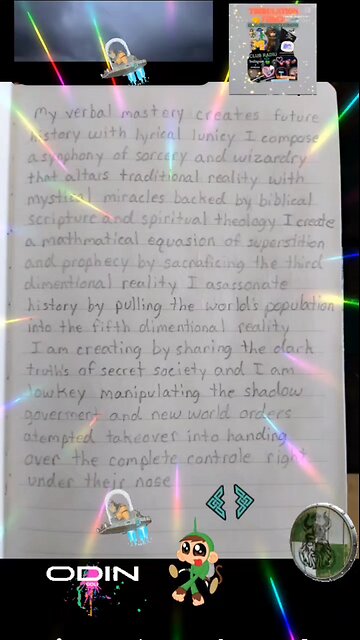 TRIBULATION
CLUB RADIO
My verbal mastery creates future
history with lyrical lunicy I compose
a symphony of sorcery and wizardry
that altars traditional reality with
mystical miracles backed by biblical
scripture and spiritual theology I create
a mathmatical equasion of superstition
and prophecy by sacraficing the third
dimentional reality I asassonate
history by pulling the worlds population
into the fifth dimentional reality
I am creating by sharing the dark
truths of secret society and I am
lowkey manipulating the shadow
goverment and new world orders
atempted takeover into handing
over the complete controle right
under their nose
ODIN